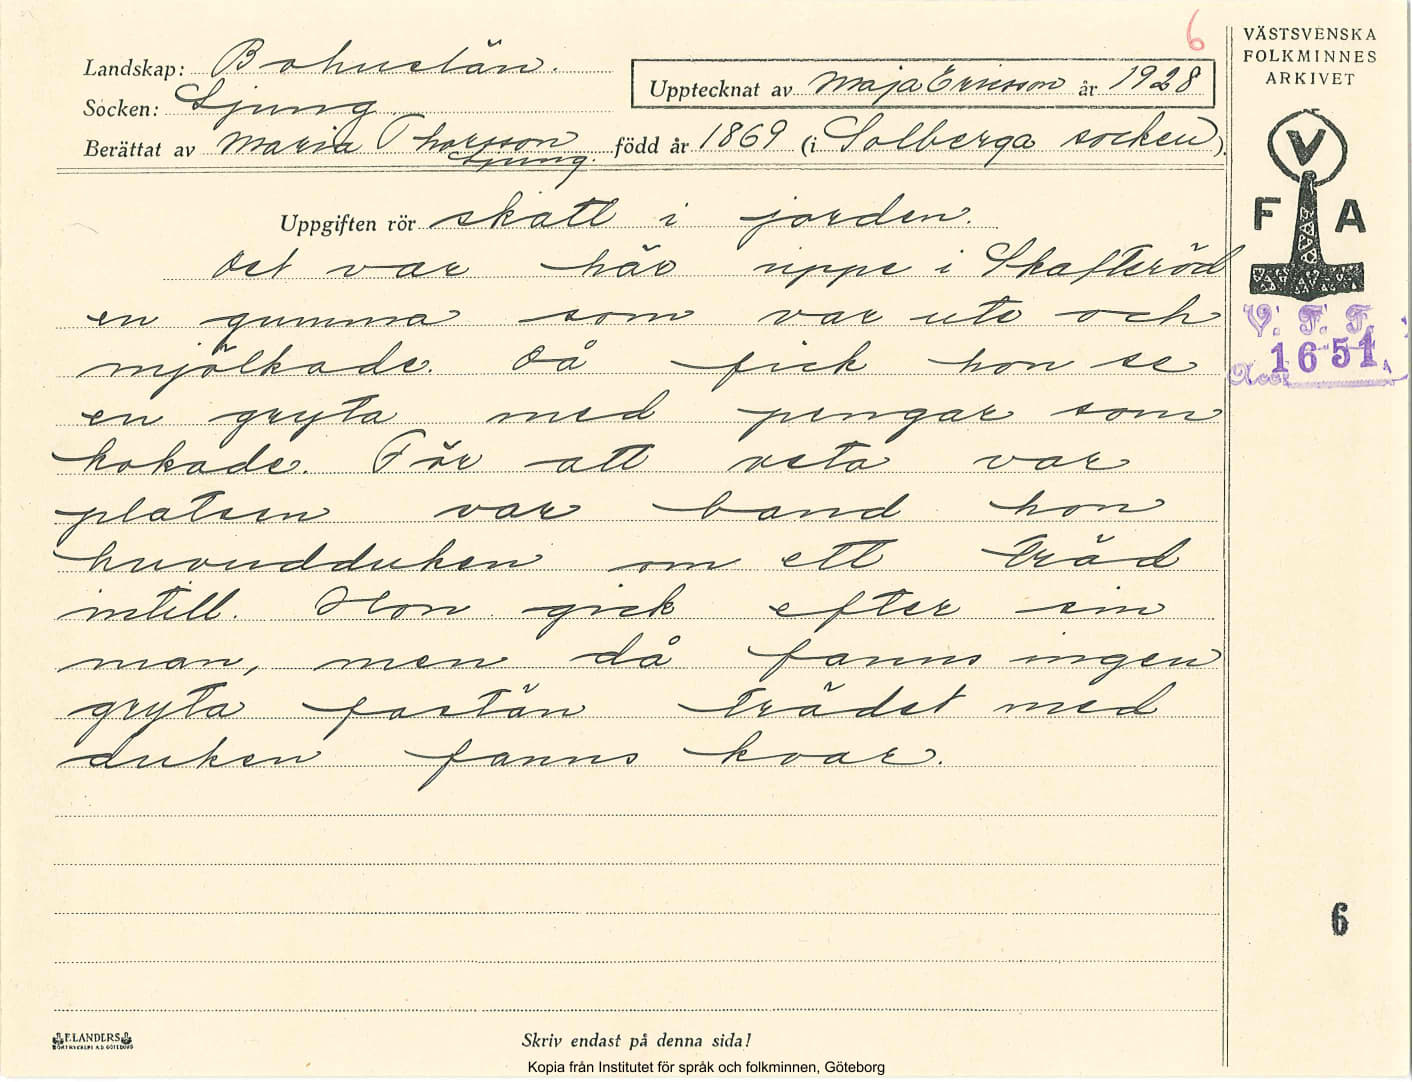 6
VÄSTSVENSKA
FOLKMINNES
ARKIVET
Landskap: Bohuslän.
Upptecknat av Maja Ericsson år 1928
Socken: Ljung
Berättat av Maria Thorsson född år 1869 (i Solberga socken).
Ljung.
V
F A
Uppgiften rör skatt i jorden.
Det var här uppe i Skafteröd
en gumma som var ute och
mjölkade. Då fick hon se
en gryta med pengar som
kokade. För att veta var
platsen var band hon
huvudduken om ett träd
intill. Hon gick efter sin
man, men då fanns ingen
gryta fastän trädet med
duken fanns kvar.
V. F. F.
Acc. 1651
6
ELANDERS
Skriv endast på denna sida!
Kopia från Institutet för språk och folkminnen, Göteborg